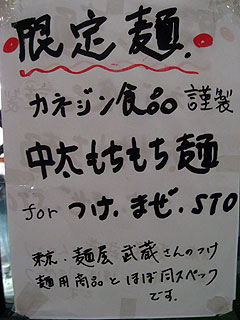 限定麺.
カネジン食品 謹製
中太もちもち麺
for つけ.まぜ.STO
東京・麺屋 武蔵さんのつけ
麺用商品とほぼ同スペック
です。